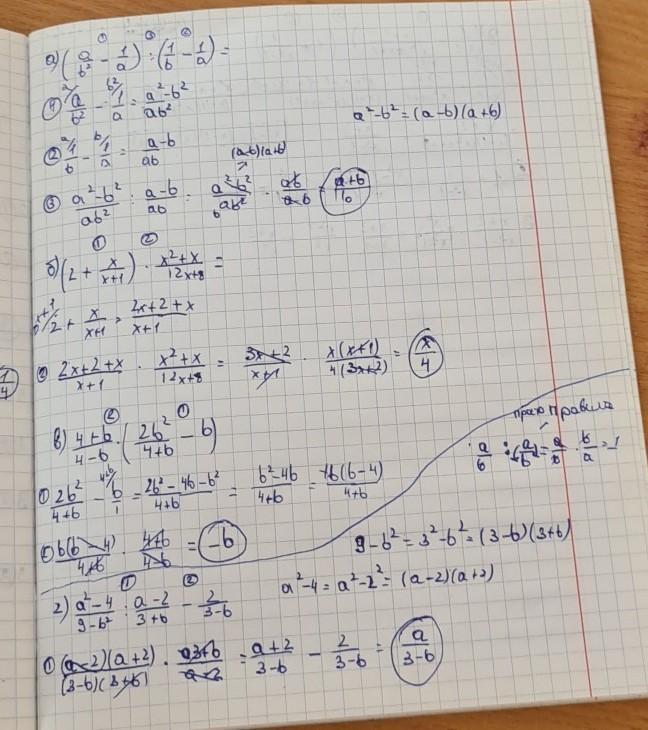 ① ③ ②
а) (a/b² - 1/a) : (1/b - 1/a) =
① a/b² - 1/a = a²-b²/ab²
a²-b² = (a-b)(a+b)
② 1/b - 1/a = a-b/ab
(a-b)(a+b)
③ a²-b²/ab² : a-b/ab = a²-b²/ab² · ab/a-b = a+b/b
① ②
б) (2 + x/x+1) · x²+x/12x+8 =
x+1/ 2 + x/x+1 = 2x+2+x/x+1
② 2x+2+x/x+1 · x²+x/12x+8 = 3x+2/x+1 · x(x+1)/4(3x+2) = x/4
② ①
в) 4+b/4-b · (2b²/4+b - b)
правила
a/b : (a/b) = a/b · b/a = 1
① 2b²/4+b - b/1 = 2b²-4b-b²/4+b = b²-4b/4+b = b(b-4)/4+b
② b(b-4)/4+b · 4+b/4-b = -b
9-b² = 3²-b² = (3-b)(3+b)
a²-4 = a²-2² = (a-2)(a+2)
① ②
г) a²-4/9-b² : a-2/3+b - 2/3-b
① (a-2)(a+2)/(3-b)(3+b) · 3+b/a-2 = a+2/3-b - 2/3-b = a/3-b